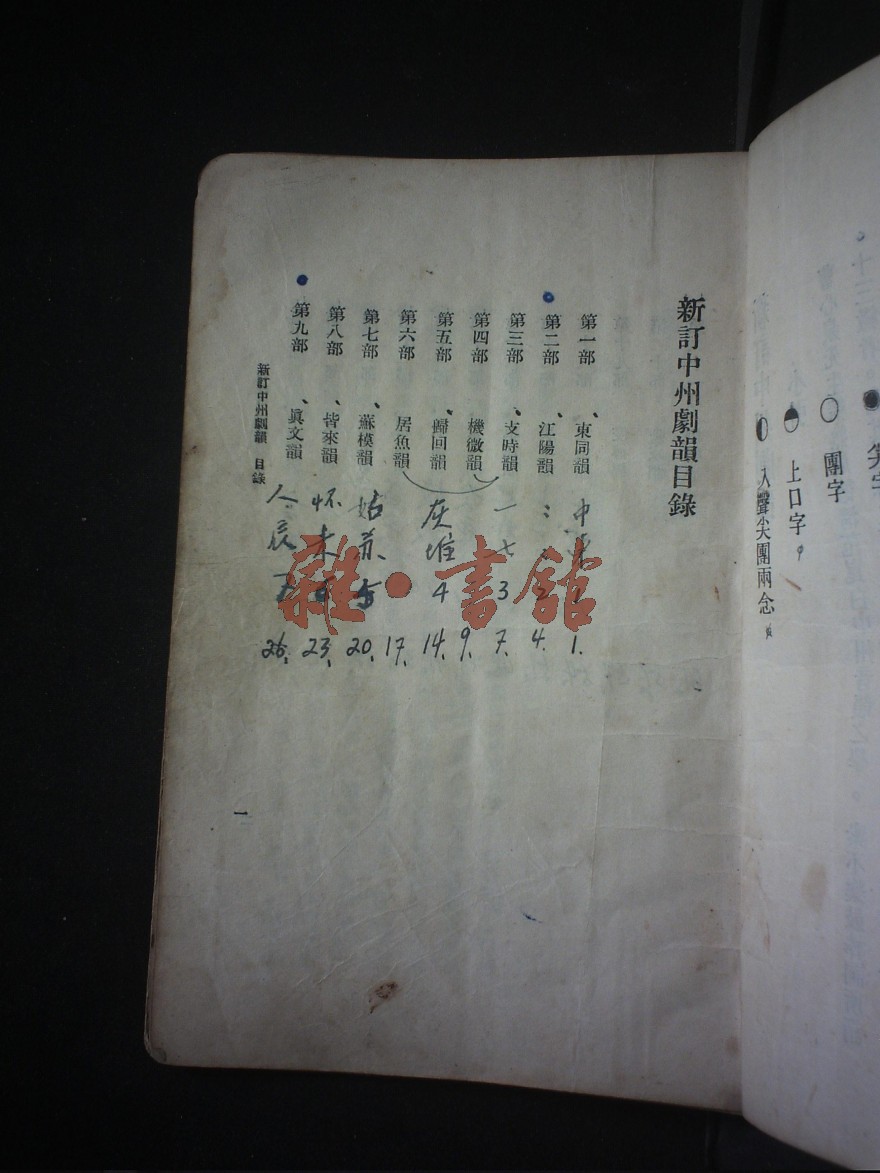 尖字
團字
上口字
入聲尖團兩念
新訂中州劇韻目錄
第一部 東同韻 中 1 1.
第二部 江陽韻 2 4.
第三部 支時韻 一七 3 7.
第四部 機微韻 9.
第五部 歸回韻 灰堆 4 14.
第六部 居魚韻 17.
第七部 蘇模韻 姑苏 5 20.
第八部 皆來韻 怀来 23.
第九部 眞文韻 人辰 26.
新訂中州劇韻 目錄
一
雜·書館